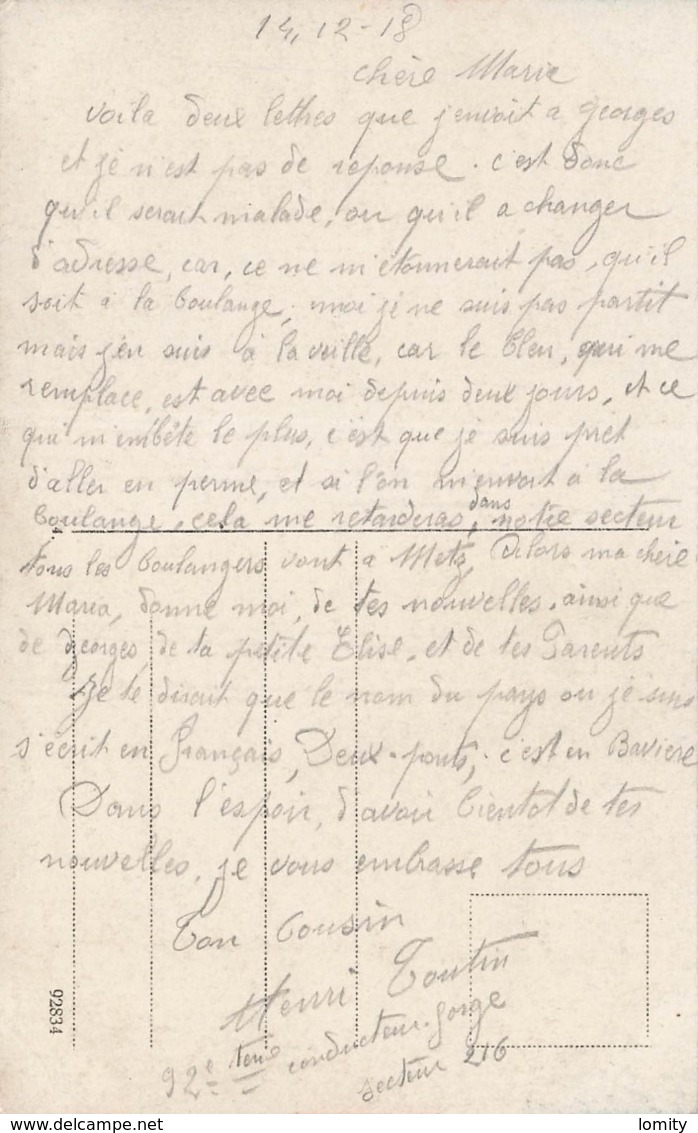 14.12-18
chère Maria
voila deux lettres que j'envoit a georges
et je n'est pas de reponse. c'est donc
qu'il serait malade, ou qu'il a changer
d'adresse, car, ce ne m'étonnerait pas, qu'il
soit à la boulange, moi je ne suis pas partit
mais j'en suis à la veille, car le bleu, qui me
remplace, est avec moi depuis deux jours, et ce
qui m'embête le plus, c'est que je suis pret
d'aller en perme, et si l'on m'envoit à la
boulange, cela me retarderas, dans notre secteur
tous les boulangers vont a Metz, Alors ma chère
Maria, donne moi, de tes nouvelles, ainsi que
de georges, de ta petite Elise, et de tes Parents
Je te dirait que le nom du pays ou je suis
s'écrit en Français, Deux-ponts, c'est en Baviere
Dans l'espoir, d'avoir bientot de tes
nouvelles, je vous embrasse tous
Ton Cousin
Henri Toutin
92e terie conducteur
secteur 216
92834
lomity